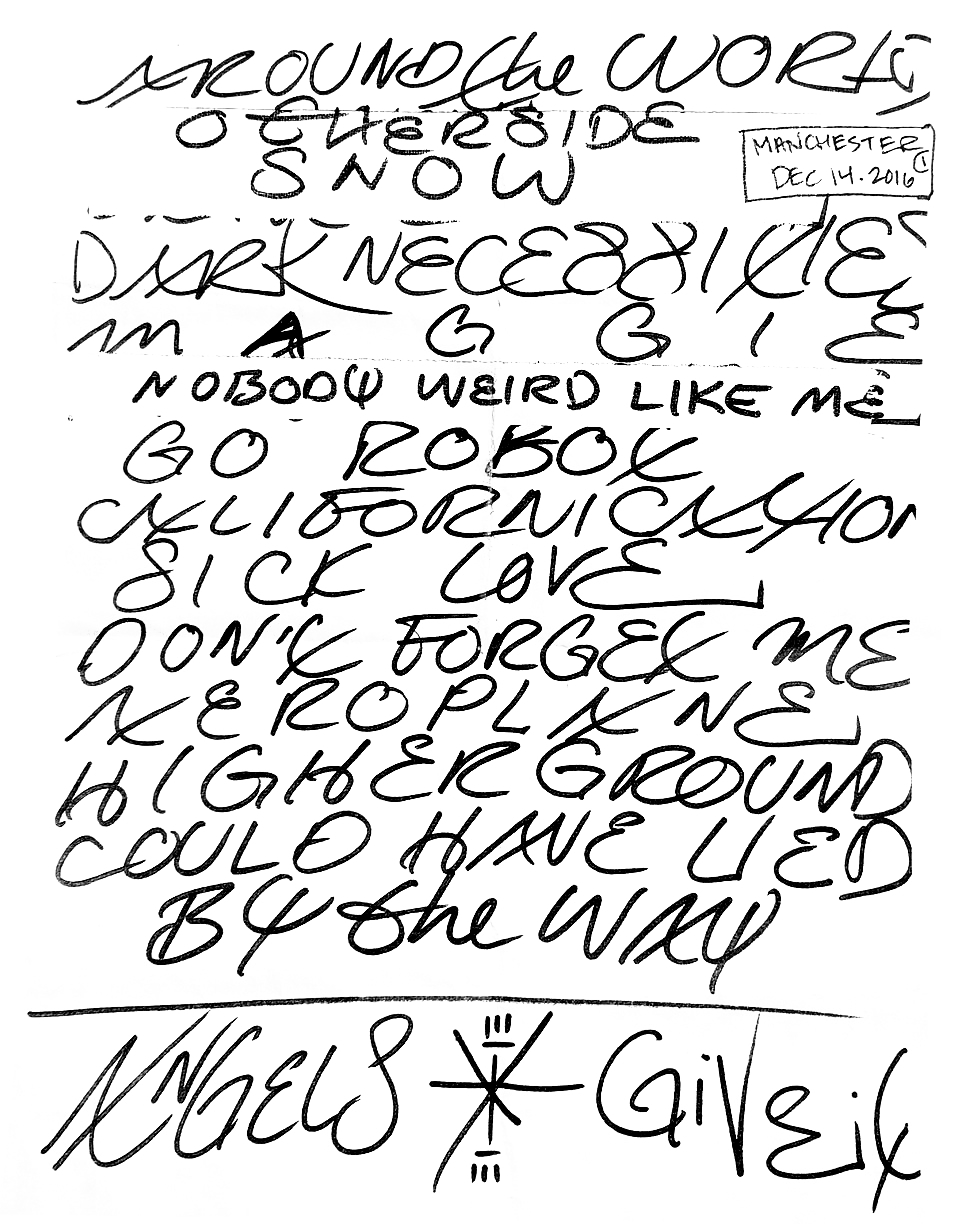 AROUND the WORLD
OTHERSIDE
SNOW
MANCHESTER
DEC 14. 2016
1
DARK NECESSITIES
MAGGIE
NOBODY WEIRD LIKE ME
GO ROBOT
CALIFORNICATION
SICK LOVE
DON'T FORGET ME
AEROPLANE
HIGHER GROUND
COULD HAVE LIED
BY the WAY
ANGELS GiVEiT